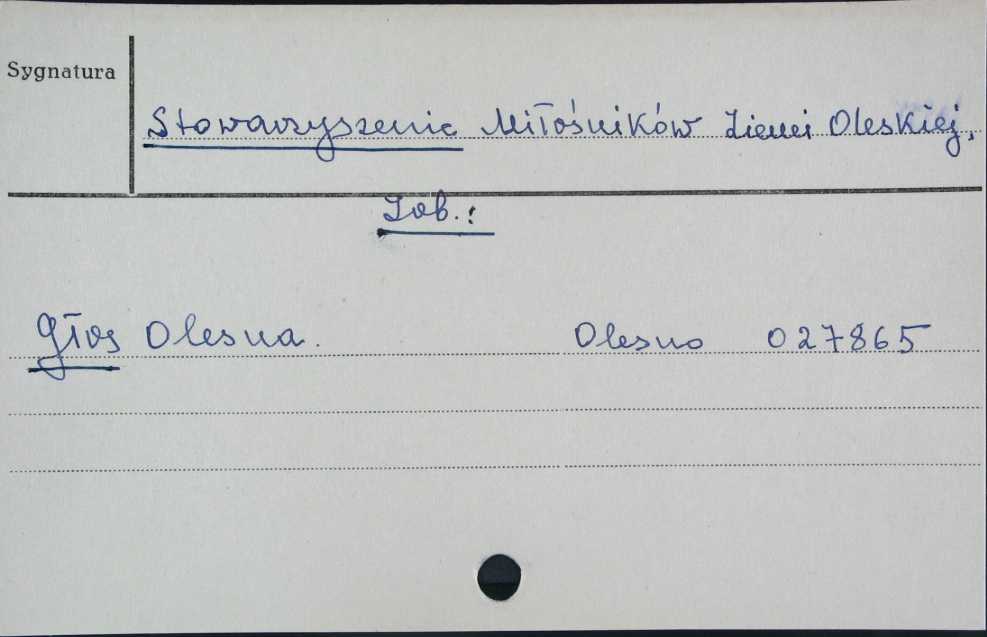 Sygnatura
Stowarzyszenie Miłośników Ziemi Oleskiej.
Zob.:
Głos Olesna. Olesno 027865